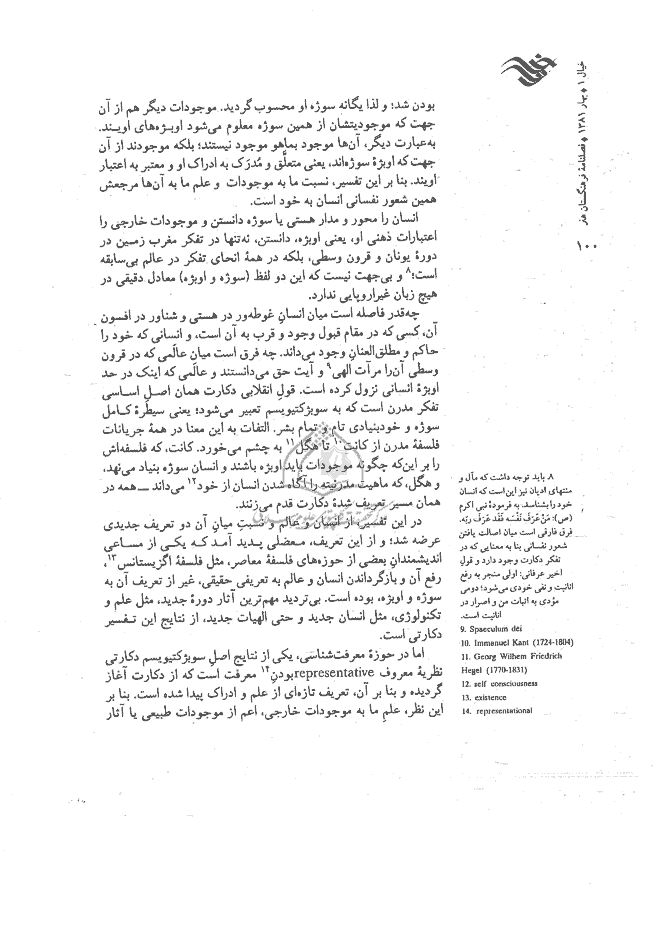 خیال ۱ • بهار ۱۳۸۱ • فصلنامهٔ فرهنگستان هنر
۱۰۰
بودن شد؛ و لذا یگانه سوژه او محسوب گردید. موجودات دیگر هم از آن
جهت که موجودیتشان از همین سوژه معلوم می‌شود اوبژه‌های اویند.
به‌عبارت دیگر، آن‌ها موجود بماهو موجود نیستند؛ بلکه موجودند از آن
جهت که اوبژهٔ سوژه‌اند، یعنی متعلَّق و مُدرَک به ادراک او و معتبر به اعتبار
اویند. بنا بر این تفسیر، نسبت ما به موجودات و علم ما به آن‌ها مرجعش
همین شعور نفسانی انسان به خود است.
انسان را محور و مدار هستی یا سوژه دانستن و موجودات خارجی را
اعتبارات ذهنی او، یعنی اوبژه، دانستن، نه‌تنها در تفکر مغرب زمین در
دورهٔ یونان و قرون وسطی، بلکه در همهٔ انحای تفکر در عالم بی‌سابقه
است؛۸ و بی‌جهت نیست که این دو لفظ (سوژه و اوبژه) معادل دقیقی در
هیچ زبان غیراروپایی ندارد.
چه‌قدر فاصله است میان انسانِ غوطه‌ور در هستی و شناور در افسون
آن، کسی که در مقام قبول وجود و قرب به آن است، و انسانی که خود را
حاکم و مطلق‌العنانِ وجود می‌داند. چه فرق است میان عالَمی که در قرون
وسطی آن‌را مرآت الهی۹ و آیت حق می‌دانستند و عالَمی که اینک در حد
اوبژهٔ انسانی نزول کرده است. قولِ انقلابی دکارت همان اصلِ اساسی
تفکر مدرن است که به سوبژکتیویسم تعبیر می‌شود؛ یعنی سیطرهٔ کامل
سوژه و خودبنیادی تام و تمام بشر. التفات به این معنا در همهٔ جریانات
فلسفهٔ مدرن از کانت۱۰ تا هگل۱۱ به چشم می‌خورد. کانت، که فلسفه‌اش
را بر این‌که چگونه موجودات باید اوبژه باشند و انسان سوژه بنیاد می‌نهد،
و هگل، که ماهیت مدرنیته را آگاه شدن انسان از خود۱۲ می‌داند ـــ همه در
همان مسیرِ تعریف شدهٔ دکارت قدم می‌زنند.
در این تفسیر از انسان و عالم و نسبتِ میان آن دو تعریف جدیدی
عرضه شد؛ و از این تعریف، معضلی پدید آمد که یکی از مساعی
اندیشمندانِ بعضی از حوزه‌های فلسفهٔ معاصر، مثل فلسفهٔ اگزیستانس۱۳،
رفع آن و بازگرداندن انسان و عالم به تعریفی حقیقی، غیر از تعریف آن به
سوژه و اوبژه، بوده است. بی‌تردید مهم‌ترین آثار دورهٔ جدید، مثل علم و
تکنولوژی، مثل انسان جدید و حتی الهیات جدید، از نتایج این تفسیر
دکارتی است.
اما در حوزهٔ معرفت‌شناسی، یکی از نتایج اصلِ سوبژکتیویسم دکارتی
نظریهٔ معروف representativeبودن۱۴ معرفت است که از دکارت آغاز
گردیده و بنا بر آن، تعریف تازه‌ای از علم و ادراک پیدا شده است. بنا بر
این نظر، علمِ ما به موجودات خارجی، اعم از موجودات طبیعی یا آثار
۸. باید توجه داشت که مآل و
منتهای ادیان نیز این است که انسان
خود را بشناسد. به فرمودهٔ نبی اکرم
(ص): مَن عَرَفَ نَفسَه فَقَد عَرَفَ رَبَّه.
فرق فارقی است میان اصالت یافتن
شعور نفسانی بنا به معنایی که در
تفکر دکارت وجود دارد و قول
اخیر عرفانی: اولی منجر به رفع
انانیت و نفی خودی می‌شود؛ دومی
مؤدی به اثبات من و اصرار در
انانیت است.
9. Spaeculum dei
10. Immanuel Kant (1724-1804)
11. Georg Wilhem Friedrich
Hegel (1770-1831)
12. self consciousness
13. existence
14. representational